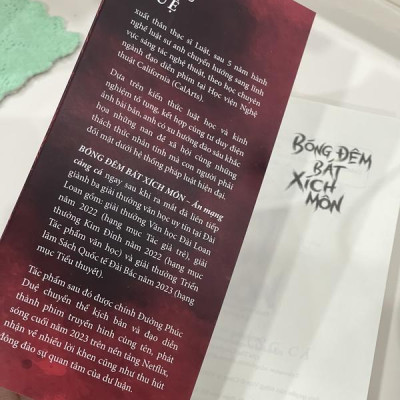 UỆ
xuất thân thạc sĩ Luật, sau 5 năm hành
nghề luật sư anh chuyển hướng sang lĩnh
vực sáng tác nghệ thuật, theo học chuyên
ngành đạo diễn phim tại Học viện Nghệ
thuật California (CalArts).
Dựa trên kiến thức luật học và kinh
nghiệm tố tụng, kết hợp cùng tư duy điện
ảnh bài bản, anh có xu hướng đào sâu khắc
họa những nan đề xã hội cùng những
thách thức nhân tính mà con người phải
đối mặt dưới hệ thống pháp luật hiện đại.
BÓNG ĐÊM BÁT XÍCH MÔN – Án mạng
cảng cá ngay sau khi ra mắt đã liên tiếp
giành ba giải thưởng văn học uy tín tại Đài
Loan gồm: giải thưởng Văn học Đài Loan
năm 2022 (hạng mục Tác giả trẻ), giải
thưởng Kim Đỉnh năm 2022 (hạng mục
Tác phẩm văn học) và giải thưởng Triển
lãm Sách Quốc tế Đài Bắc năm 2023 (hạng
mục Tiểu thuyết).
Tác phẩm sau đó được chính Đường Phúc
Duệ chuyển thể kịch bản và đạo diễn
thành phim truyền hình cùng tên, phát
sóng cuối năm 2023 trên nền tảng Netflix,
nhận về nhiều lời khen cũng như thu hút
đông đảo sự quan tâm của dư luận.
BÓNG ĐÊM
BÁT
XÍCH
MÔN